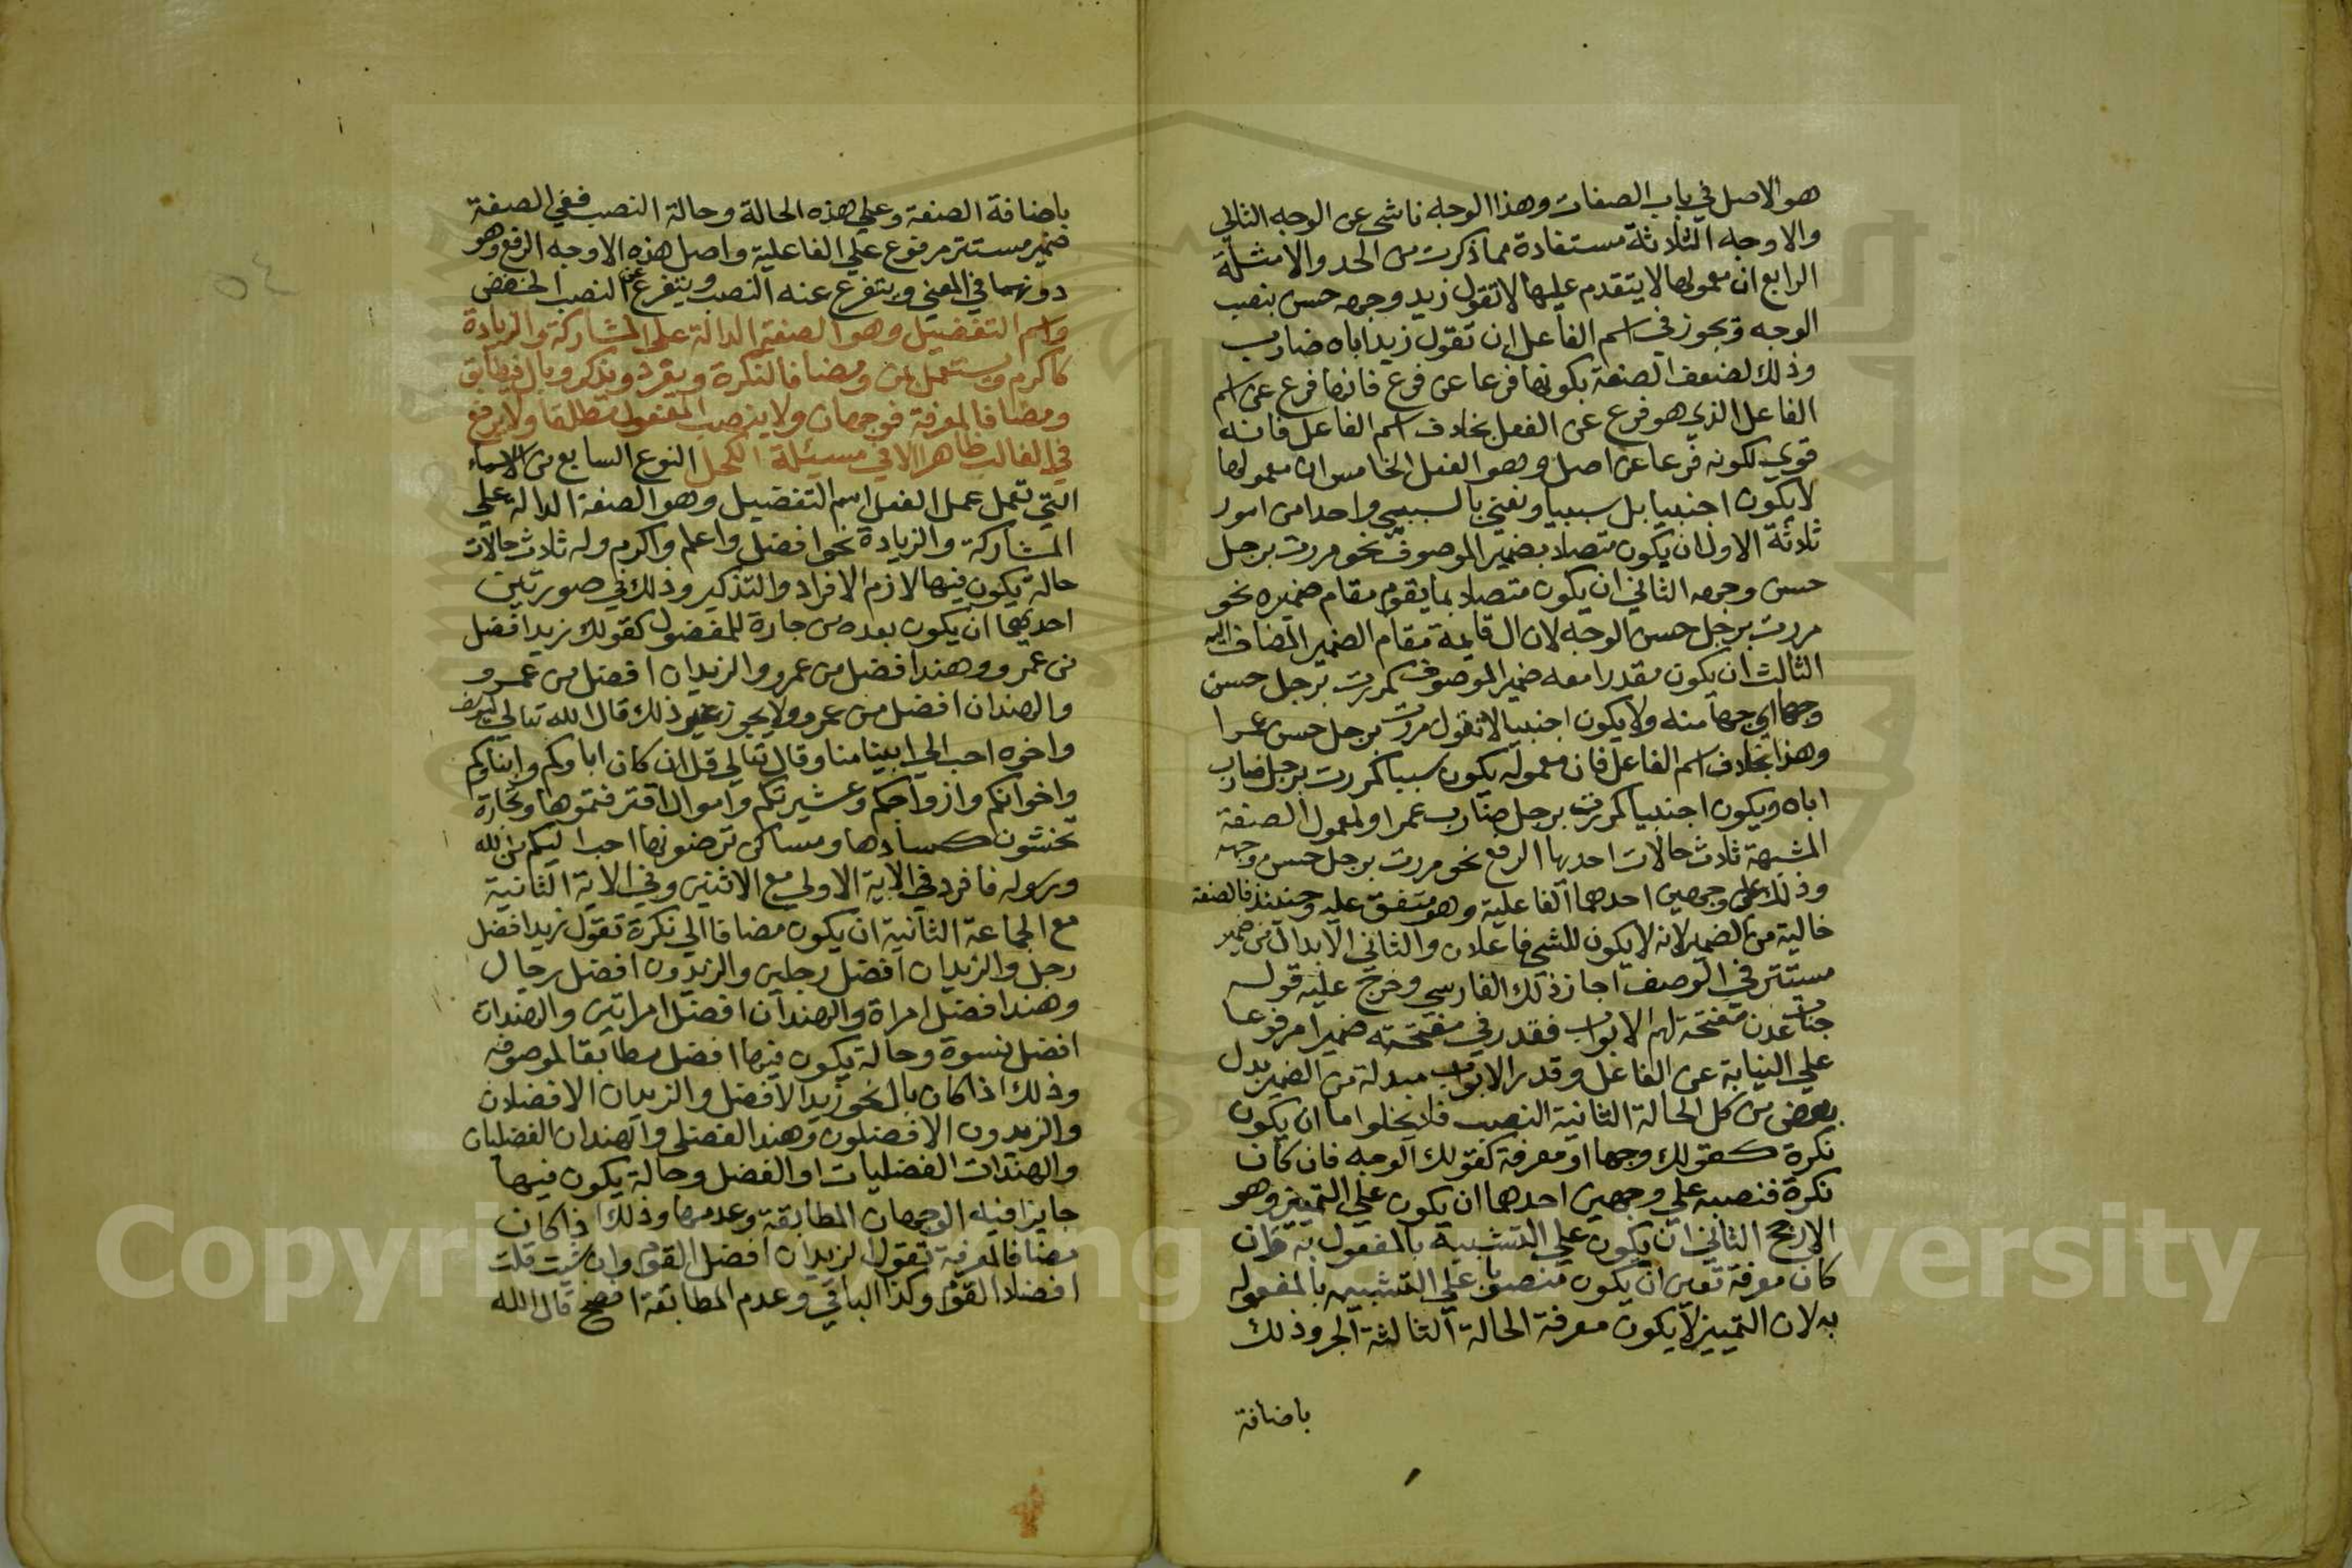 هو الاصل في باب الصفات وهذا الوجه ناشي عن الوجه الثاني
والاوجه الثلاثة مستفادة مما ذكرت من الحد والامثلة
الرابع ان معمولها لا يتقدم عليها لا تقول زيد وجهه حسن بنصب
الوجه ويجوز في اسم الفاعل ان تقول زيد اباه ضارب
وذلك لضعف الصفة بكونها فرعا عن فرع فانها فرع عن اسم
الفاعل الذي هو فرع عن الفعل بخلاف اسم الفاعل فانه
قوي لكونه فرعا عن اصل وهو الفعل الخامس ان معمولها
لا يكون اجنبيا بل سببيا ونعني بالسببي واحدا من امور
ثلاثة الاول ان يكون متصلا بضمير الموصوف نحو مررت برجل
حسن وجهه الثاني ان يكون متصلا بما يقوم مقام ضميره نحو
مررت برجل حسن الوجه لان ال قايمة مقام الضمير المضاف اليه
الثالث ان يكون مقدرا معه ضمير الموصوف كمررت برجل حسن
وجها اي وجها منه ولا يكون اجنبيا لا تقول مررت برجل حسن عمرا
وهذا بخلاف اسم الفاعل فان معموله يكون سببيا كمررت برجل ضارب
اباه ويكون اجنبيا كمررت برجل ضارب عمرا ولمعمول الصفة
المشبهة ثلاث حالات احديها الرفع نحو مررت برجل حسن وجهه
وذلك على وجهين احدهما الفاعلية وهو متفق عليه وحينئذ فالصفة
خالية من الضمير لانه لا يكون للشي فاعلان والثاني الابدال من ضمير
مستتر في الوصف اجاز ذلك الفارسي وخرج عليه قوله
جنات عدن مفتحة لهم الابواب فقدر في مفتحة ضميرا مرفوعا
علي النيابة عن الفاعل وقدر الابواب مبدلة من الضمير بدل
بعض من كل الحالة الثانية النصب فلا يخلوا اما ان يكون
نكرة كقولك وجها او معرفة كقولك الوجه فان كان
نكرة فنصبه علي وجهين احدهما ان يكون علي التمييز وهو
الارجح الثاني ان يكون علي التشبيه بالمفعول به فان
كان معرفة تعين ان يكون منصوبا علي التشبيه بالمفعول
به لان التمييز لا يكون معرفة الحالة الثالثة الجر وذلك
باضافة
باضافة الصفة وعلي هذه الحالة وحالة النصب ففي الصفة
ضمير مستتر مرفوع علي الفاعلية واصل هذه الاوجه الرفع وهو
دونهما في المعني ويتفرع عنه النصب ويتفرع عن النصب الخفض
واسم التفضيل وهو الصفة الدالة على المشاركة والزيادة
كاكرم ويستعمل بمن ومضافا لنكرة ويفرد ويذكر وبال فيطابق
ومضافا لمعرفة فوجهان ولا ينصب المفعول مطلقا ولا يرفع
في الغالب ظاهرا الا في مسيئلة الكحل النوع السابع من الاسماء
التي تعمل عمل الفعل اسم التفضيل وهو الصفة الدالة علي
المشاركة والزيادة نحو افضل واعلم واكرم وله ثلاث حالات
حالة يكون فيها لازم الافراد والتذكير وذلك في صورتين
احديهما ان يكون بعده من جارة للمفضول كقولك زيد افضل
من عمرو وهند افضل من عمرو والزيدان افضل من عمرو
والهندان افضل من عمرو ولا يجوز غير ذلك قال الله تعالي ليوسف
واخوه احب الي ابينا منا وقال تعالي قل ان كان اباوكم وابناوكم
واخوانكم وازواجكم وعشيرتكم واموال اقترفتموها وتجارة
تخشون كسادها ومساكن ترضونها احب اليكم من الله
ورسوله فافرد في الاية الاولي مع الاثنين وفي الاية الثانية
مع الجماعة الثانية ان يكون مضافا الي نكرة تقول زيد افضل
رجل والزيدان افضل رجلين والزيدون افضل رجال
وهند افضل امراة والهندان افضل امراتين والهندات
افضل نسوة وحالة يكون فيها افضل مطابقا لموصوفه
وذلك اذا كان بال نحو زيد الافضل والزيدان الافضلان
والزيدون الافضلون وهند الفضلى والهندان الفضليان
والهندات الفضليات او الفضل وحالة يكون فيها
جايزا فيه الوجهان المطابقة وعدمها وذلك اذا كان
مضافا لمعرفة تقول الزيدان افضل القوم وان شيت قلت
افضلا القوم وكذا الباقي وعدم المطابقة افصح قال الله